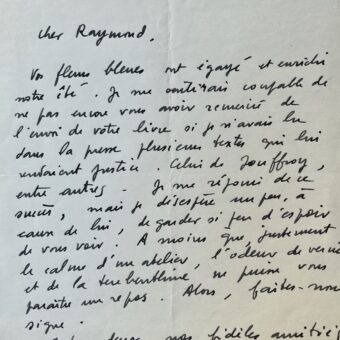 cher Raymond.
Vos fleurs bleues ont égayé et enrichi
notre été. Je me sentirais coupable de
ne pas encore vous avoir remercié de
l'envoi de votre livre si je n'avais lu
dans la presse plusieurs textes qui lui
rendaient justice. Celui de Jouffroy,
entre autres. Je me réjouis de ce
succès, mais je désespère un peu, à
cause de lui, de garder si peu d'espoir
de vous voir. A moins que, justement
le calme d'un atelier, l'odeur de vernis
et de la terebenthine, ne puisse vous
paraître un repos. Alors, faites-nous
signe.
nos fidèles amitiés